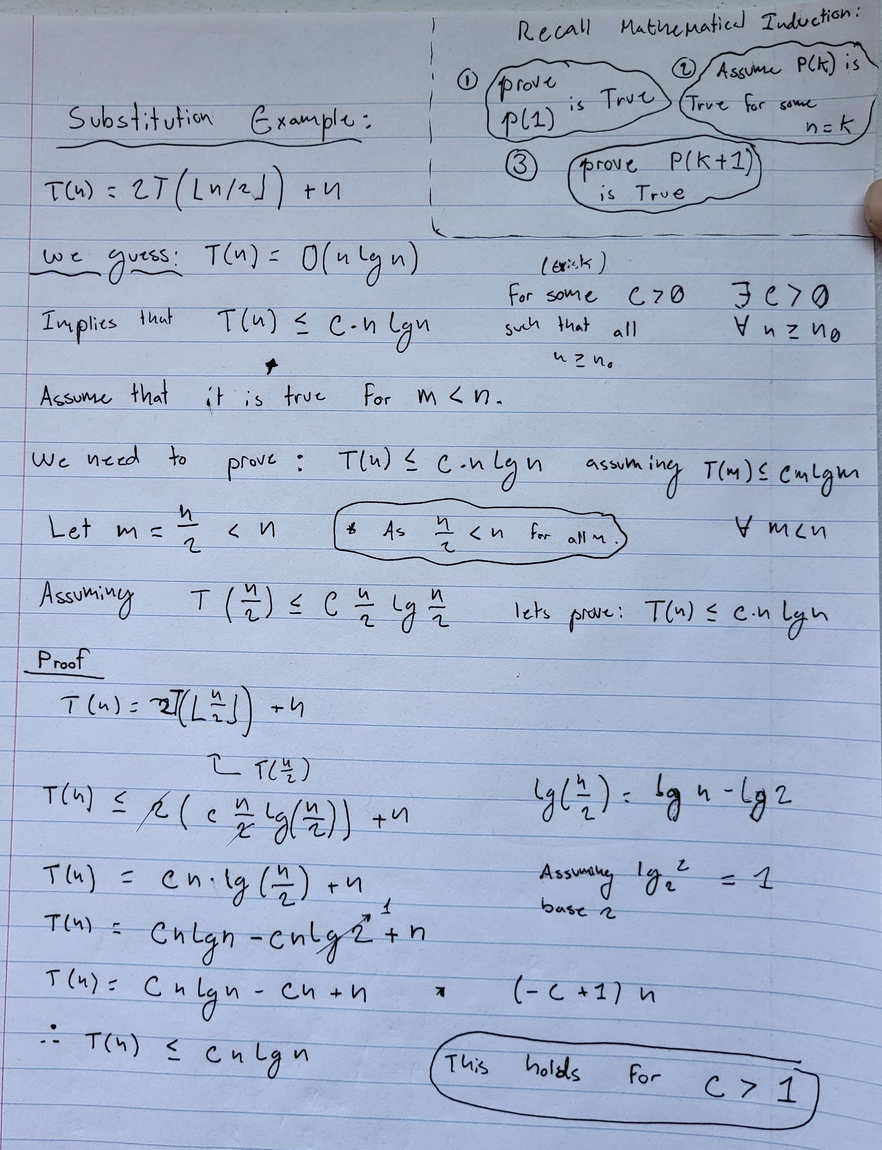 Recall Mathematical Induction:
① prove P(1) is True
② Assume P(k) is True for some n = k
③ prove P(k+1) is True
Substitution Example:
T(n) = 2T(⌊n/2⌋) + n
we guess: T(n) = O(n lg n)
Implies that T(n) ≤ c·n lg n
For some c > 0 ∃ c > 0
such that all ∀ n ≥ n₀
n ≥ n₀
Assume that it is true for m < n.
We need to prove: T(n) ≤ c·n lg n assuming T(m) ≤ c m lg m
∀ m < n
Let m = n/2 < n * As n/2 < n for all n.
Assuming T(n/2) ≤ c n/2 lg n/2 lets prove: T(n) ≤ c·n lg n
Proof
T(n) = 2T(⌊n/2⌋) + n
T(n/2)
T(n) ≤ 2(c n/2 lg(n/2)) + n lg(n/2) = lg n - lg 2
T(n) = cn·lg(n/2) + n Assuming lg₂² = 1
base 2
T(n) = cn lg n - cn lg 2 + n
1
T(n) = cn lg n - cn + n * (-c + 1) n
∴ T(n) ≤ cn lg n
This holds for c > 1